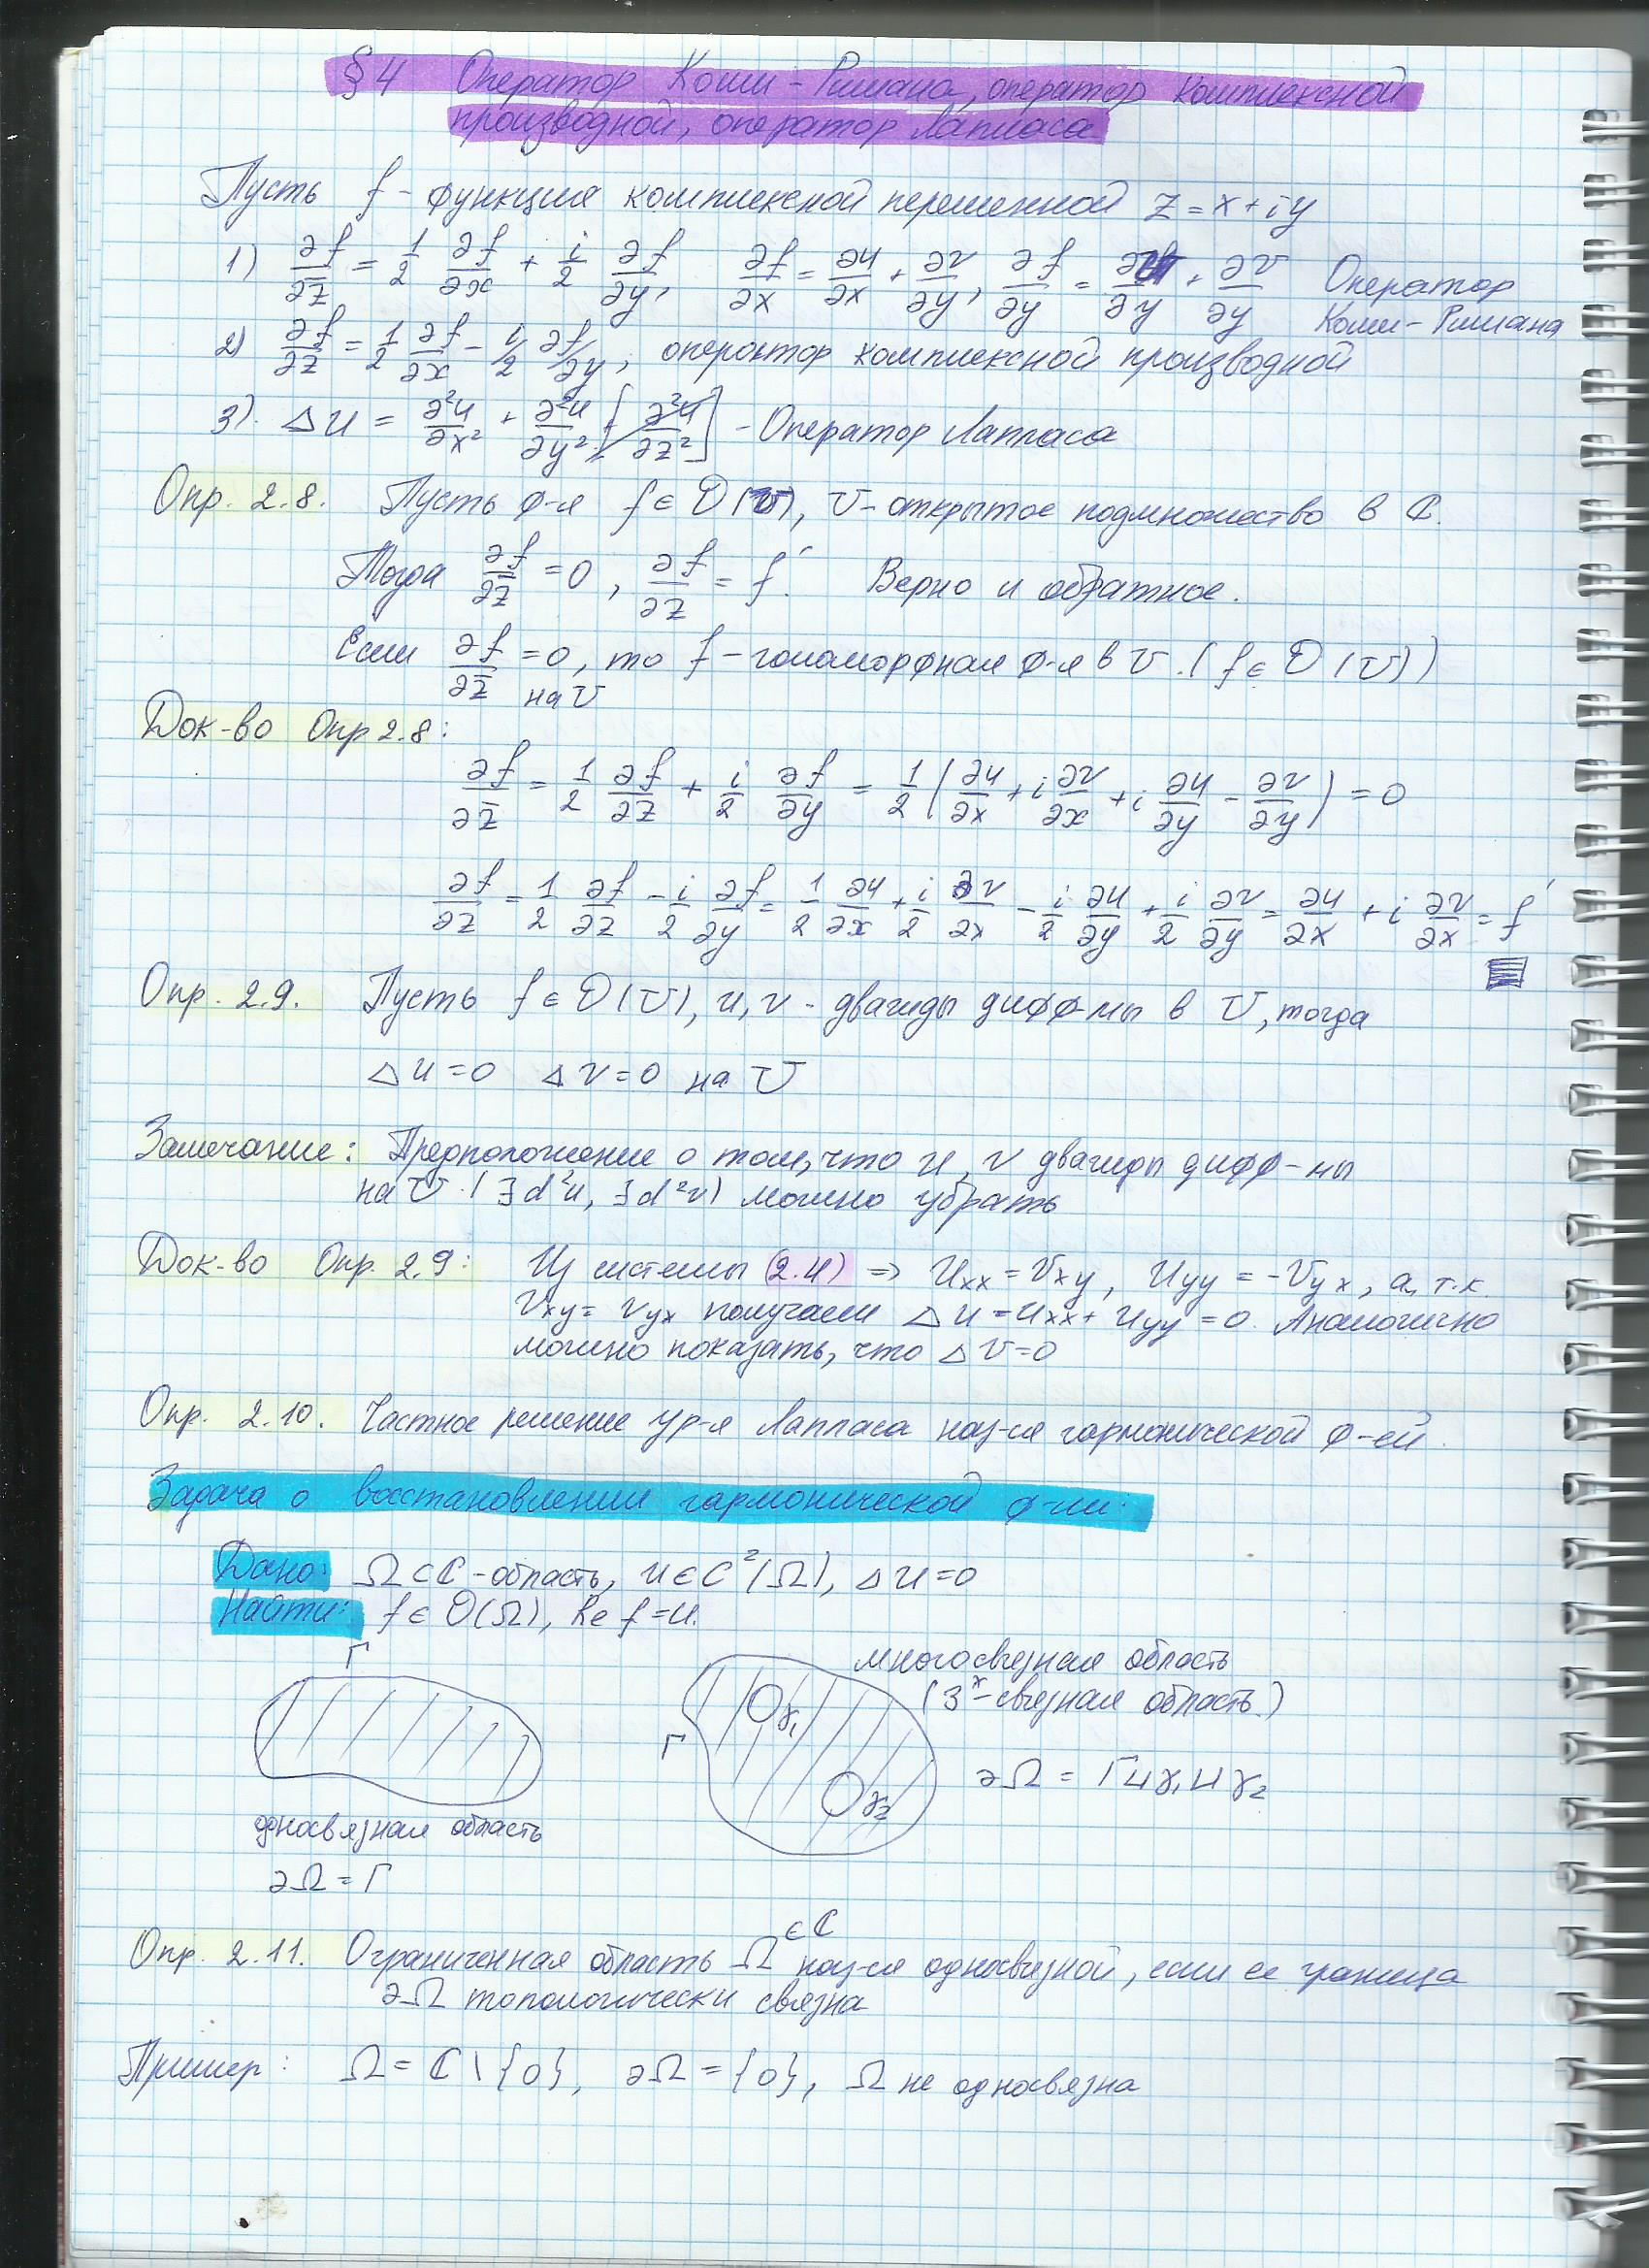 §4 Оператор Коши-Римана, оператор комплексной
производной, оператор Лапласа
Пусть f - функция комплексной переменной z = x + iy
1) ∂f/∂z̄ = 1/2 ∂f/∂x + i/2 ∂f/∂y, ∂f/∂x = ∂u/∂x + ∂v/∂y, ∂f/∂y = ∂u/∂y + ∂v/∂y Оператор
Коши-Римана
2) ∂f/∂z = 1/2 ∂f/∂x - i/2 ∂f/∂y, оператор комплексной производной
3). Δu = ∂²u/∂x² + ∂²u/∂y² [+ ∂²u/∂z²] - Оператор Лапласа
Опр. 2.8. Пусть ф-я f ∈ O(U), U - открытое подмножество в ℂ.
Тогда ∂f/∂z̄ = 0, ∂f/∂z = f′. Верно и обратное.
Если ∂f/∂z̄ = 0, то f - голоморфная ф-я в U. (f ∈ O(U))
на U
Док-во Опр 2.8:
∂f/∂z̄ = 1/2 ∂f/∂z + i/2 ∂f/∂y = 1/2 (∂u/∂x + i ∂v/∂x + i ∂u/∂y - ∂v/∂y) = 0
∂f/∂z = 1/2 ∂f/∂z - i/2 ∂f/∂y = 1/2 ∂u/∂x + i/2 ∂v/∂x - i/2 ∂u/∂y + i/2 ∂v/∂y = ∂u/∂x + i ∂v/∂x = f′
Опр. 2.9. Пусть f ∈ O(U), u, v - дважды дифф-мы в U, тогда
Δu = 0 Δv = 0 на U
Замечание: Предположение о том, что u, v дважды дифф-мы
на U. (∃d²u, ∃d²v) можно убрать
Док-во Опр. 2.9: Из системы (2.4) ⇒ Uxx = Vxy, Uyy = -Vyx, а, т.к.
Vxy = Vyx получаем Δu = Uxx + Uyy = 0. Аналогично
можно показать, что Δv = 0
Опр. 2.10. Частное решение ур-я Лапласа наз-ся гармонической ф-ей.
Задача о восстановлении гармонической ф-ии.
Дано: Ω ⊂ ℂ - область, u ∈ C²(Ω), Δu = 0
Найти: f ∈ O(Ω), Re f = u.
Г
многосвязная область
(3ˣ-связная область.)
γ₁
Г
∂Ω = Г ⊔ γ₁ ⊔ γ₂
γ₂
односвязная область
∂Ω = Г
∈ ℂ
Опр. 2.11. Ограниченная область Ω наз-ся односвязной, если ее граница
∂Ω топологически связна
Пример: Ω = ℂ \ {0}, ∂Ω = {0}, Ω не односвязна